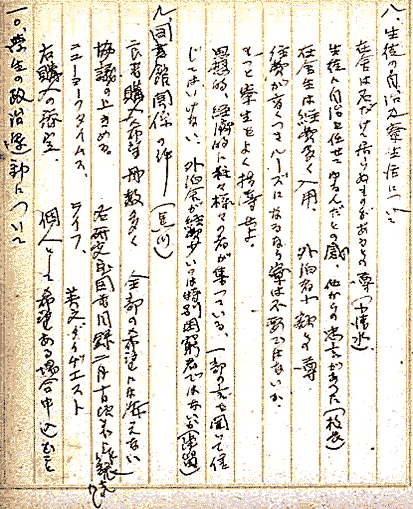 八、生徒の自治及寮生活について
在舎は名だけで居らぬものがあるとの尊(小清水)
生徒に自治を任せてゆるんだとの感、他からの忠言があった(校長)
在舎生は経費多く入用、外泊者十数名の尊
経費が苦くつきルーズになるなら寮は不要ではないか。
もっと寮生をよく指導せよ。
思想的、経済的に種々様々の者が集っている、一部の言を聞いて信
じてはいけない、外泊舎が経済多いのは特別困窮者ではないか
九、図書館関係の件
図書購入希望冊数多く 全部の希望には応えない
協議の上きめる 各研究室図書目録二月
ニューヨークタイムス、ライフ、英文ダイゼエスト
右購入の予定、個人として希望ある場合申込むこと
一〇、学生の政治運動について